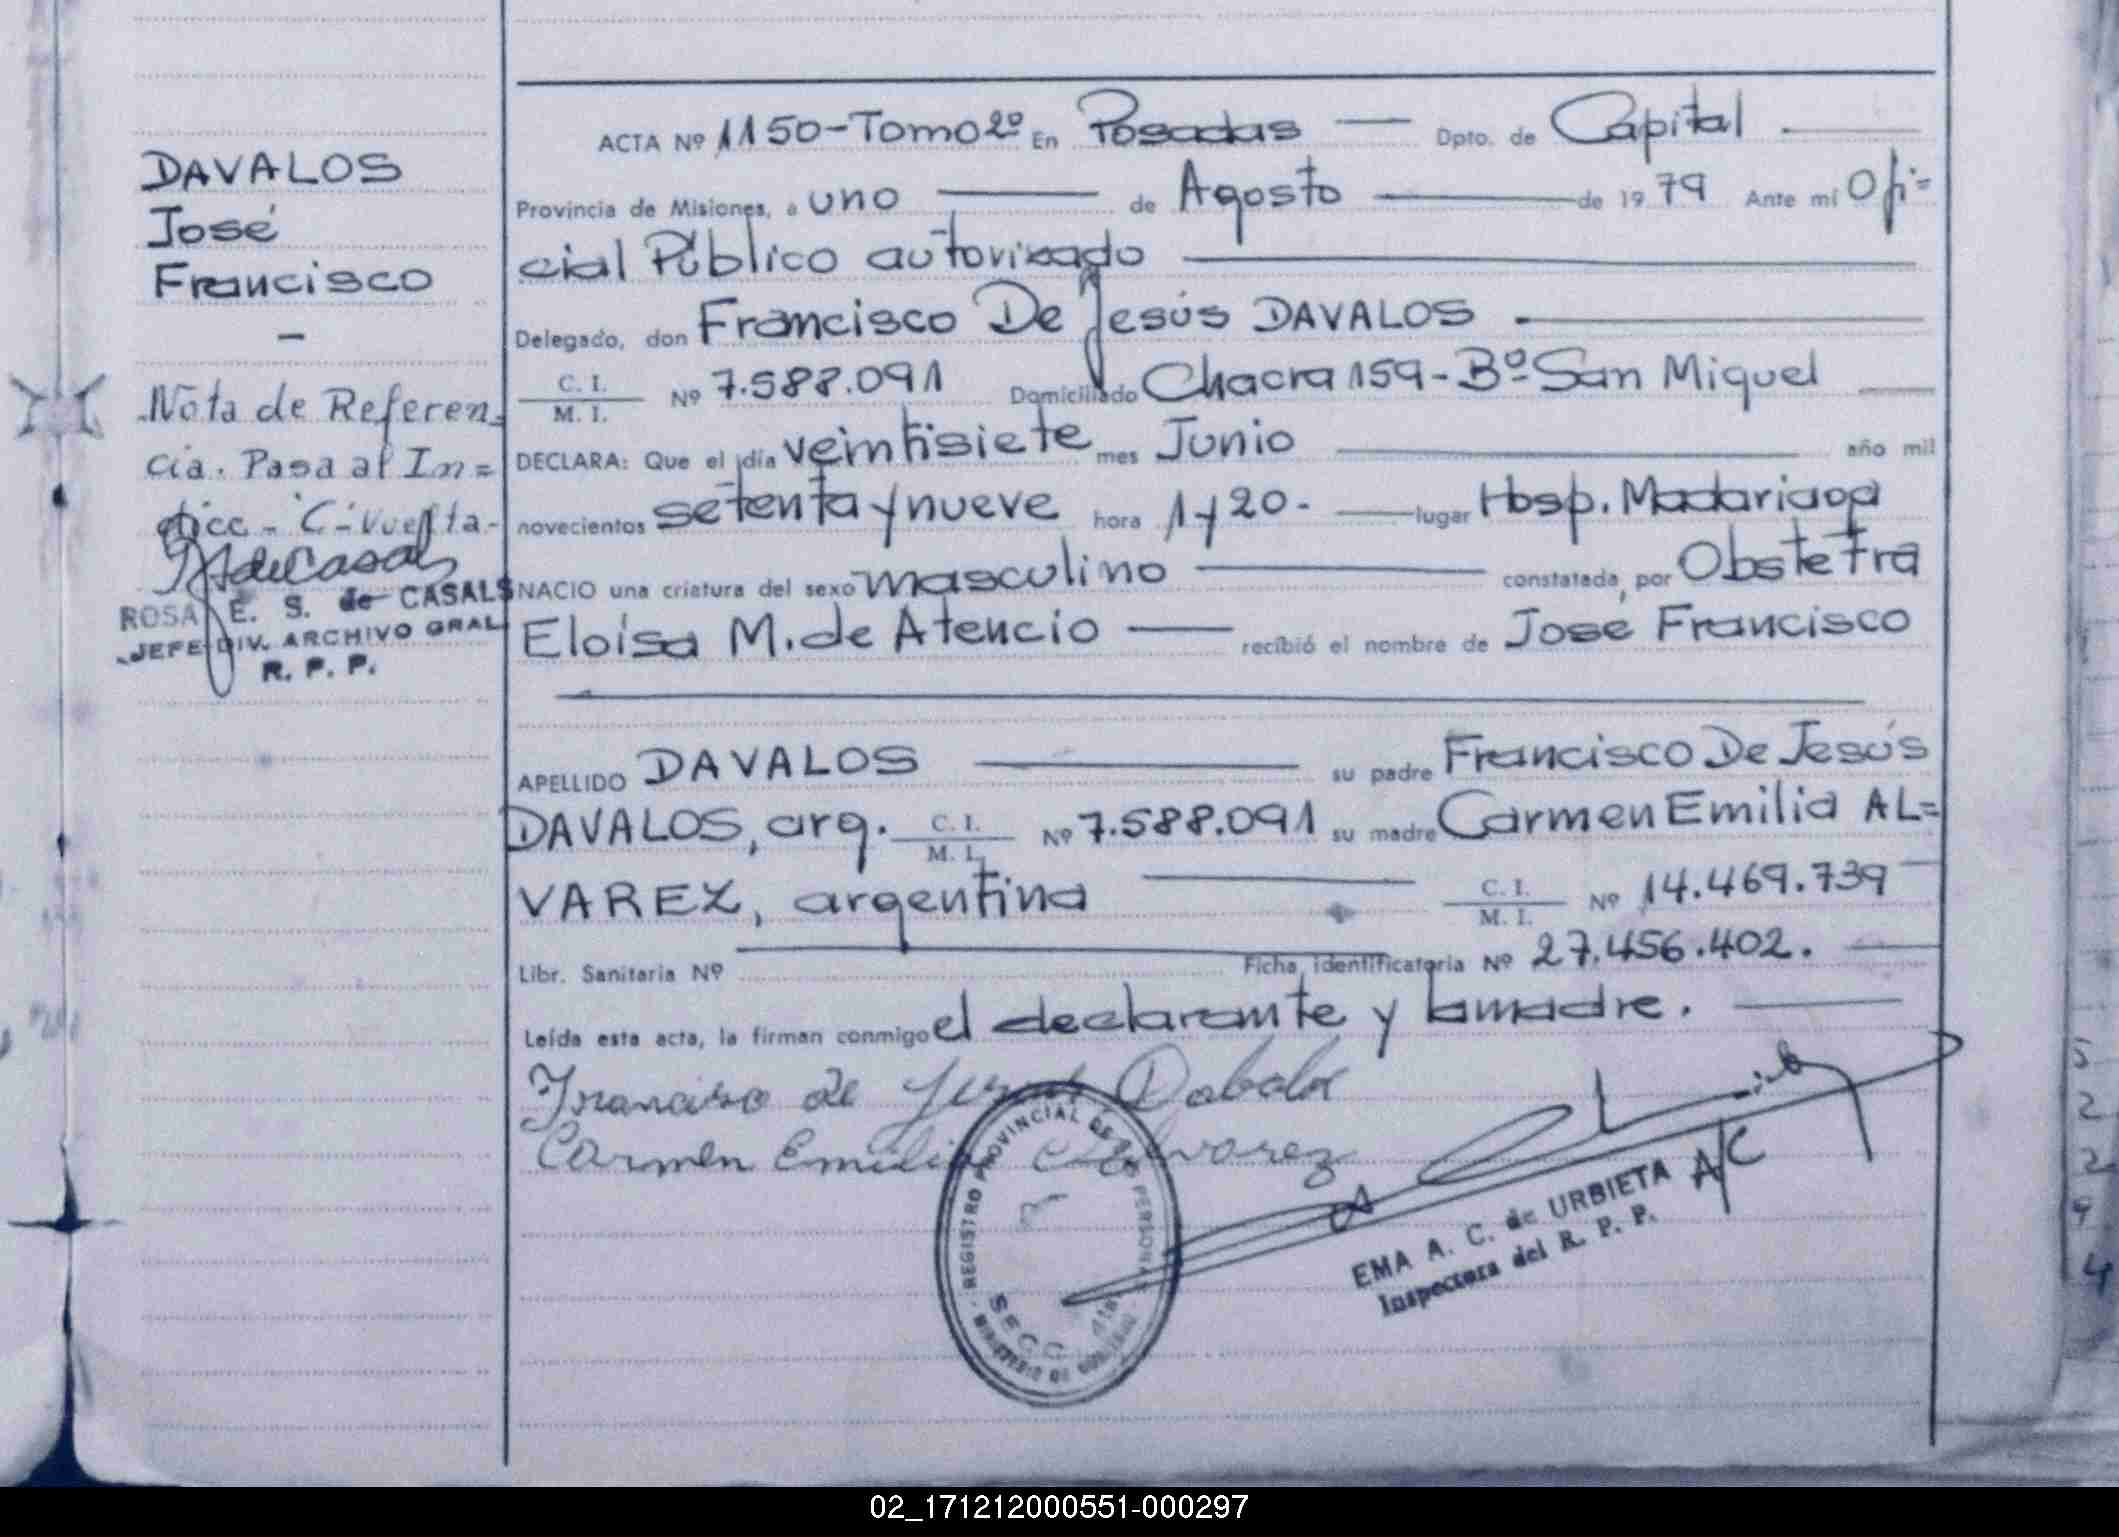 DAVALOS
José
Francisco
-
Nota de Referen-
cia. Pasa al In=
dice - C - Vuelta-
ROSA E. S. de CASALS
JEFE DIV. ARCHIVO GRAL
R. P. P.
ACTA Nº 1150-Tomo 2º En Posadas — Dpto. de Capital
Provincia de Misiones, a uno — de Agosto — de 1979 Ante mí Ofi=
cial Público autorizado
Delegado, don Francisco De Jesús DAVALOS
C. I. / M. I. Nº 7.588.091 Domiciliado Chacra 159-Bº San Miguel
DECLARA: Que el día veintisiete mes Junio — año mil
novecientos setenta y nueve hora 1 y 20. — lugar Hosp. Madariaga
NACIO una criatura del sexo masculino — constatada, por Obstetra
Eloísa M. de Atencio — recibió el nombre de José Francisco
APELLIDO DAVALOS — su padre Francisco De Jesús
DAVALOS, arg. C. I. / M. I. Nº 7.588.091 su madre Carmen Emilia AL=
VAREZ, argentina — C. I. / M. I. Nº 14.469.739
Libr. Sanitaria Nº — Ficha identificatoria Nº 27.456.402.
Leída esta acta, la firman conmigo el declarante y la madre.
Francisco de Jesus Dabalos
Carmen Emilia Alvarez
REGISTRO PROVINCIAL DE LAS PERSONAS
MINISTERIO DE GOBIERNO
A/C
EMA A. C. de URBIETA
Inspectora del R. P. P.
02_171212000551-000297